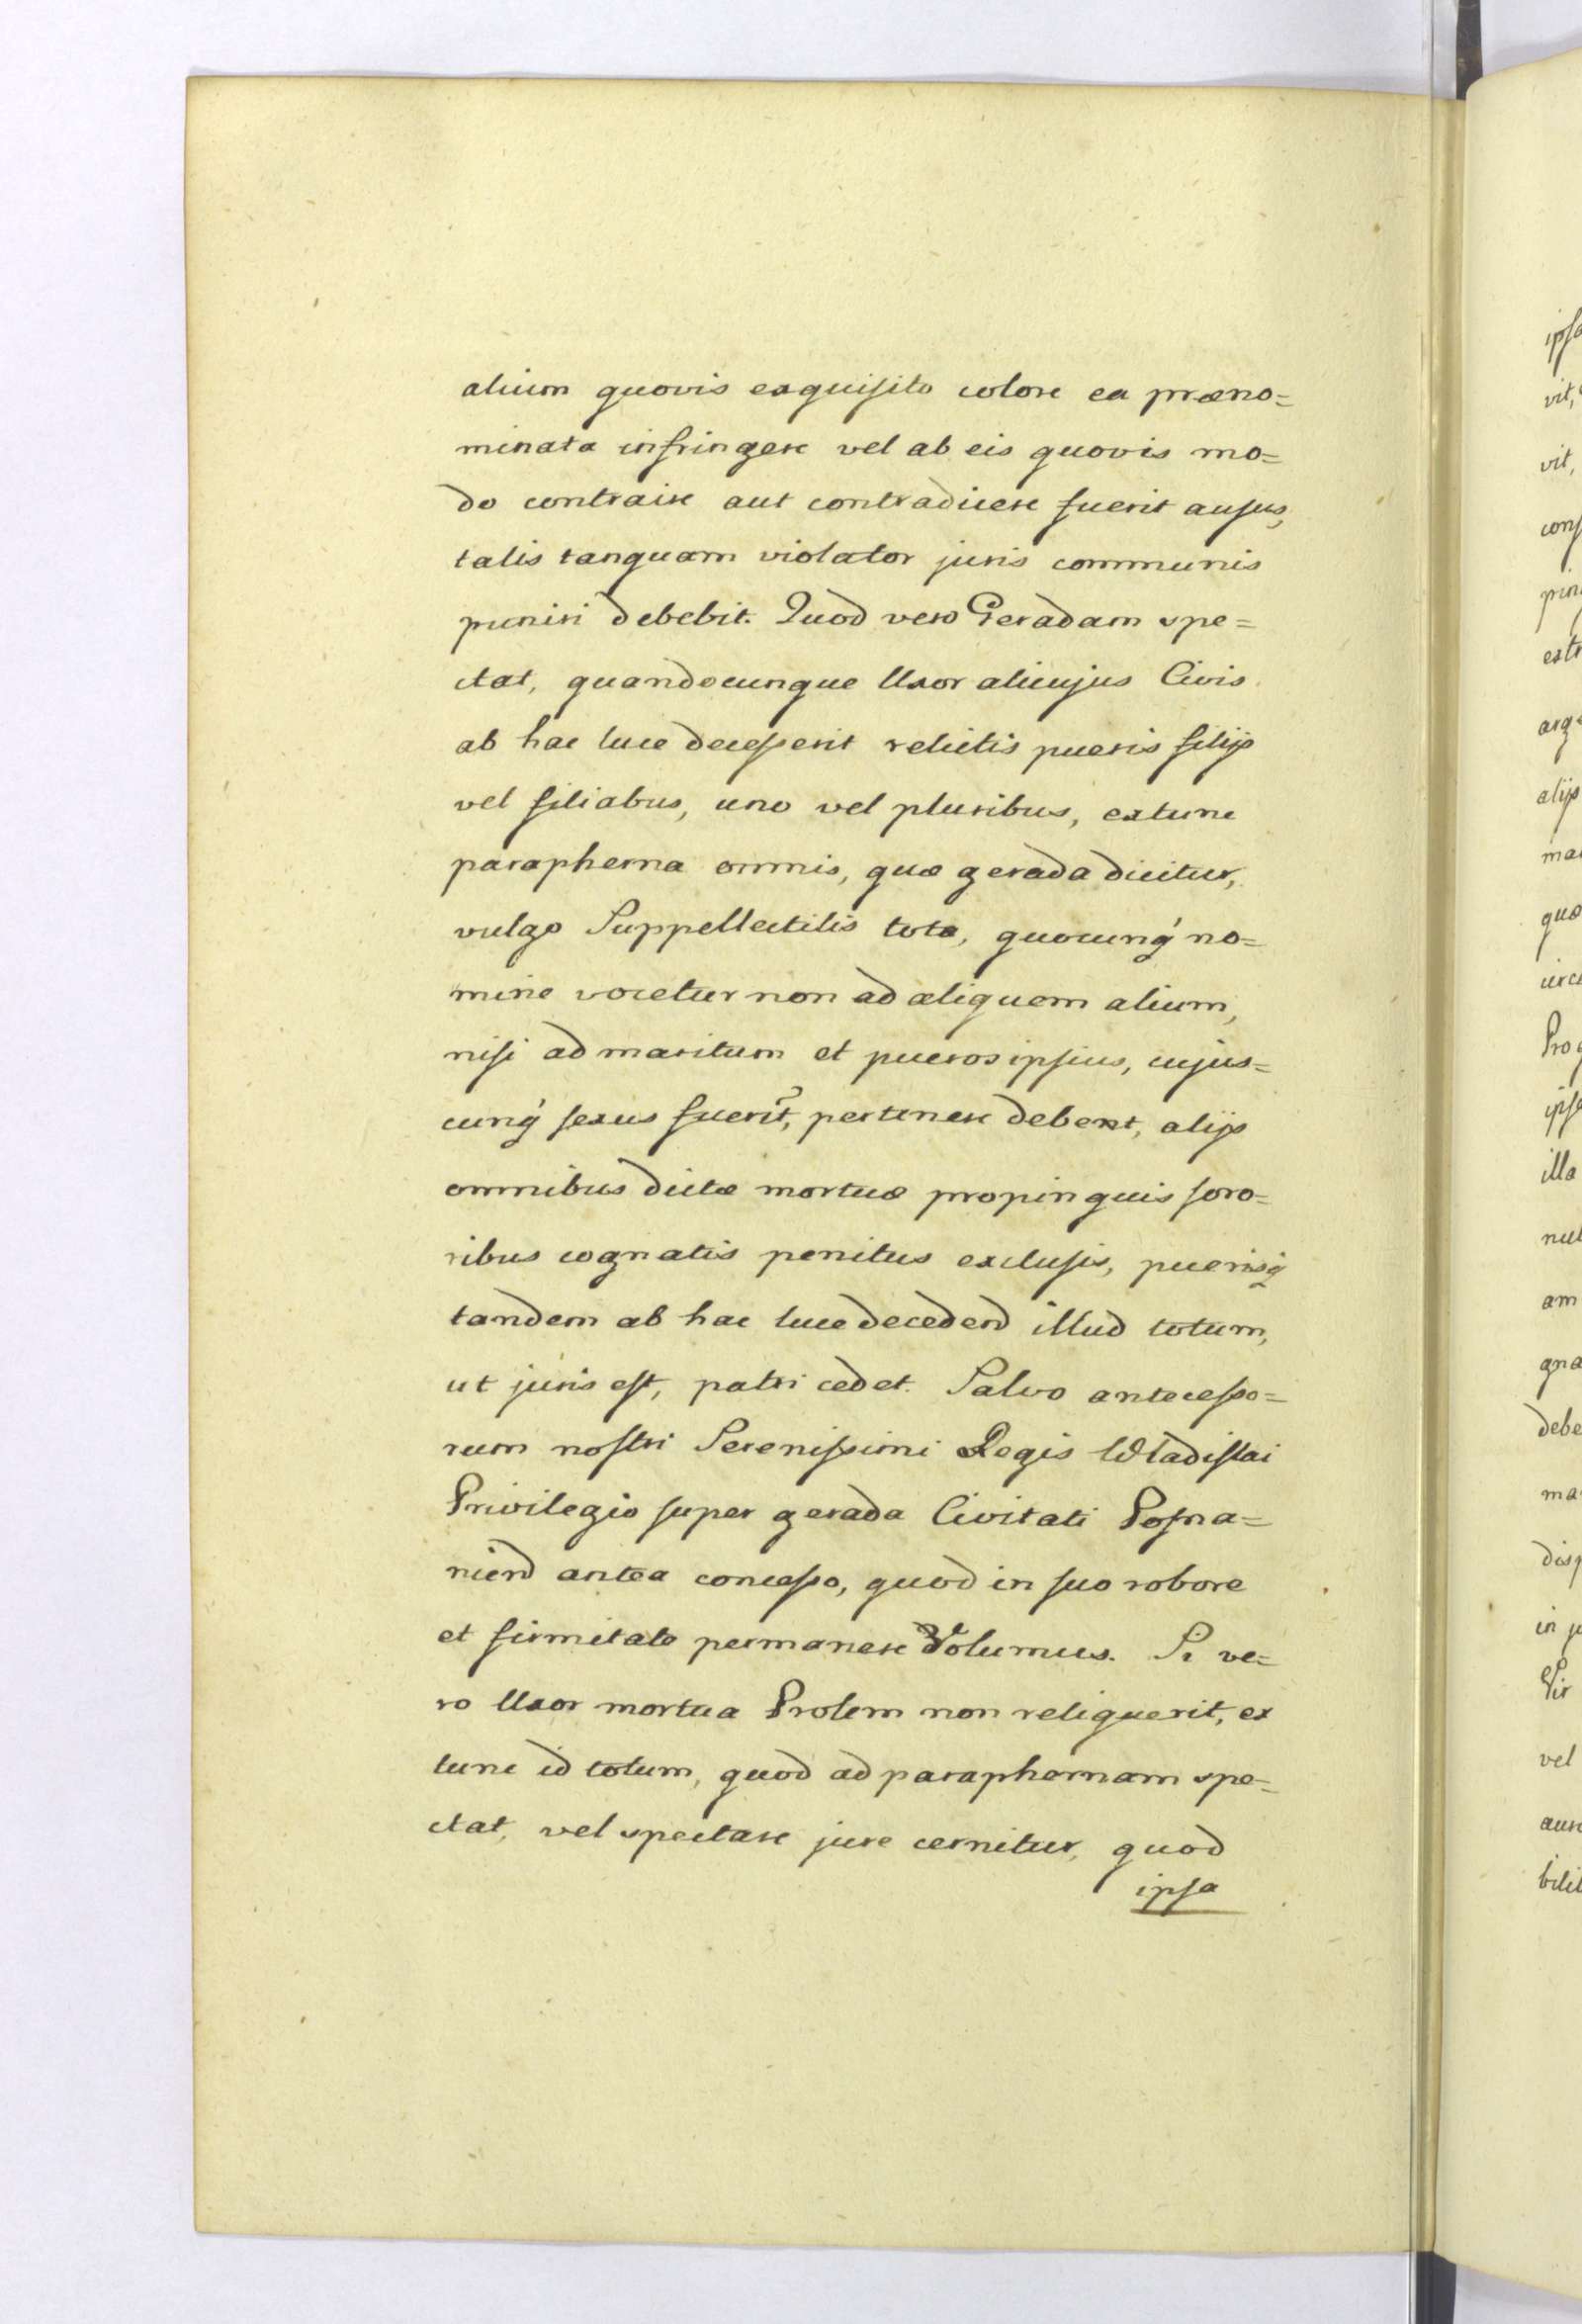 alium quovis exquisito colore ea præno=
minata infringere vel ab eis quovis mo=
do contraire aut contradicere fuerit ausus,
talis tanquam violator juris communis
puniri debebit. Quod vero Geradam spe=
ctat, quandocunque Uxor alicujus Civis
ab hac luce decesserit relictis pueris filijs
vel filiabus, uno vel pluribus, extunc
parapherna omnis, quæ gerada dicitur,
vulgo Suppellectilis tota, quocunq́ no=
mine vocetur non ad aliquem alium,
nisi ad maritum et pueros ipsius, cujus=
cunq́ sexus fuerit, pertinere debent, alijs
omnibus dictæ mortuæ propinquis soro=
ribus cognatis penitus exclusis, puerisq́
tandem ab hac luce deceden illud totum,
ut juris est, patri cedet. Salvo antecesso=
rum nostri Serenissimi Regis Wladislai
Privilegio super gerada Civitati Posna=
nien antea concesso, quod in suo robore
et firmitate permanere Volumus. Si ve=
ro Uxor mortua Prolem non reliquerit, ex
tunc id totum, quod ad paraphernam spe=
ctat, vel spectare jure cernitur, quod
ipsa
ipsa
vit,
vit,
alijs
quæ
ipsa
illa
am
gna
debe
in ju
Vir
vel